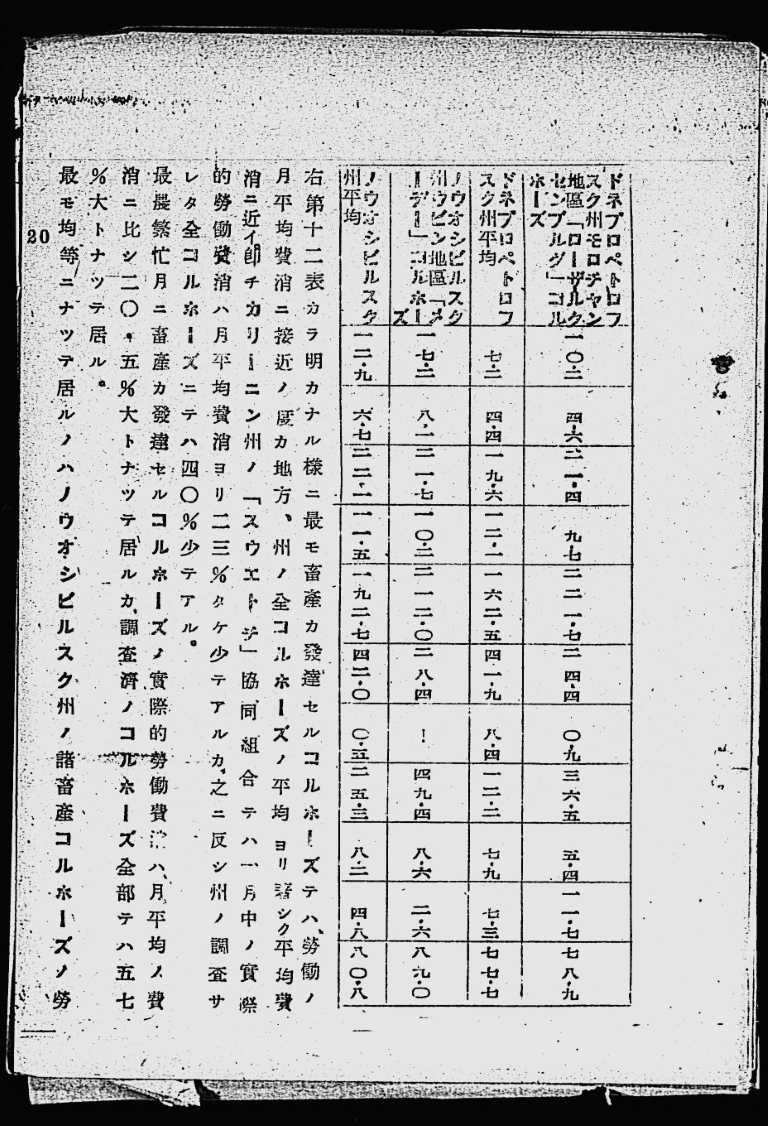 ドネプロペトロフ
スク州モロチャン
地區「ローザルク
センブルグ」コル
ホーズ
一〇・二 四・六 二一・四 九・七 二二一・七 二四・四 〇・九 三六・五 五・四 一一・七 七八・九
ドネプロペトロフ
スク州平均
七・二 四・四 一九・六 一二・一 一六二・五 四一・九 八・四 一二・二 七・九 七・三 七七・七
ノウオシビルスク
州ウビン地區「メ
ーデー」コルホー
ズ
一七・二 八・一 二一・七 一〇・二 三一二・〇 二八・四 ！ 四九・四 八・六 二・六 八九・〇
ノウオシビルスク
州平均
一二・九 六・七 二二・一 一一・五 一九二・七 四二・〇 〇・五 二五・三 八・二 四・八 八〇・八
右第十二表カラ明カナル樣ニ最モ畜產カ發達セルコルホーズテハ、勞働ノ
月平均費消ニ接近ノ度カ地方、州ノ全コルホーズノ平均ヨリ著シク平均費
消ニ近イ卽チカリーニン州ノ「スウエトチ」協同組合テハ一月中ノ實際
的勞働費消ハ月平均費消ヨリ二三％タケ少テアルカ、之ニ反シ州ノ調査サ
レタ全コルホーズニテハ四〇％少テアル。
最農繁忙月ニ畜產カ發達セルコルホーズノ實際的勞働費消ハ、月平均ノ費
消ニ比シ二〇・五％大トナツテ居ルカ、調査濟ノコルホーズ全部テハ五七
％大トナツテ居ル。
最モ均等ニナツテ居ルノハノウオシビルスク州ノ諸畜產コルホーズノ勞
20